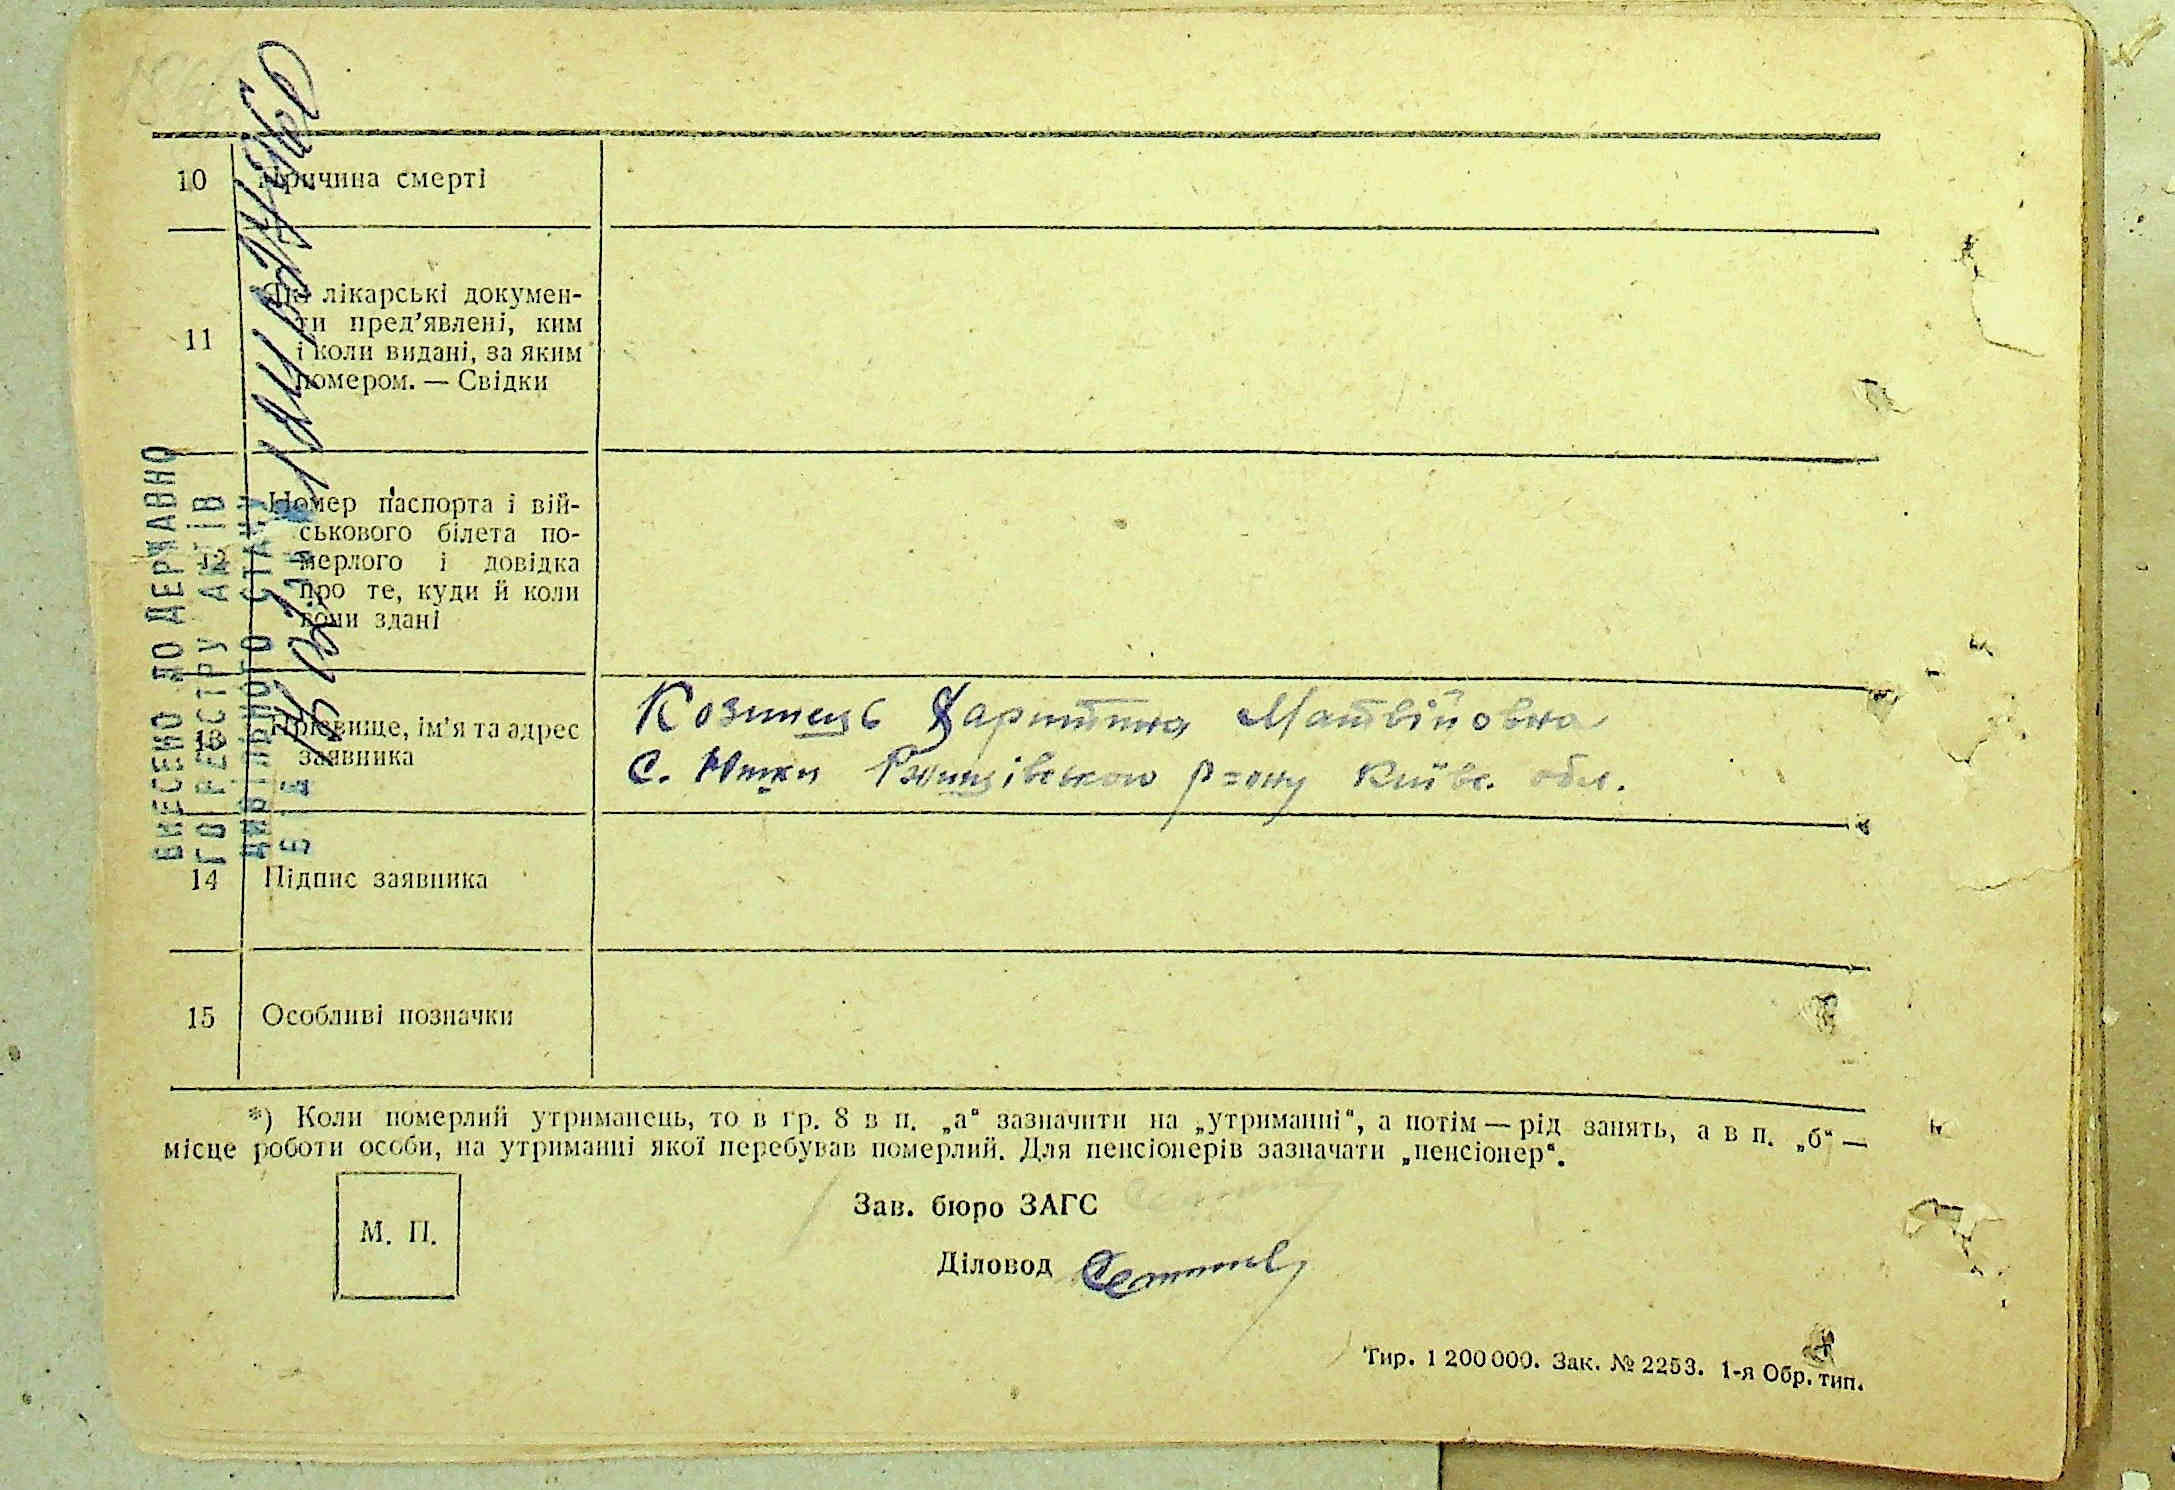 10 Причина смерті
11 Які лікарські докумен-
ти пред'явлені, ким
і коли видані, за яким
номером. — Свідки
12 Номер паспорта і вій-
ськового білета по-
мерлого і довідка
про те, куди й коли
вони здані
13 Прізвище, ім'я та адрес
заявника
Козинець Харитина Матвійовна
с. Юшки Ржищівського р-ону Київс. обл.
14 Підпис заявника
15 Особливі позначки
ВНЕСЕНО ДО ДЕРЖАВНО
ГО РЕЄСТРУ АКТІВ
ЦИВІЛЬНОГО СТАНУ
*) Коли померлий утриманець, то в гр. 8 в п. „а“ зазначити на „утриманні“, а потім — рід занять, а в п. „б“ —
місце роботи особи, на утриманні якої перебував померлий. Для пенсіонерів зазначати „пенсіонер“.
М. П.
Зав. бюро ЗАГС
Діловод
Тир. 1 200 000. Зак. № 2253. 1-я Обр. тип.